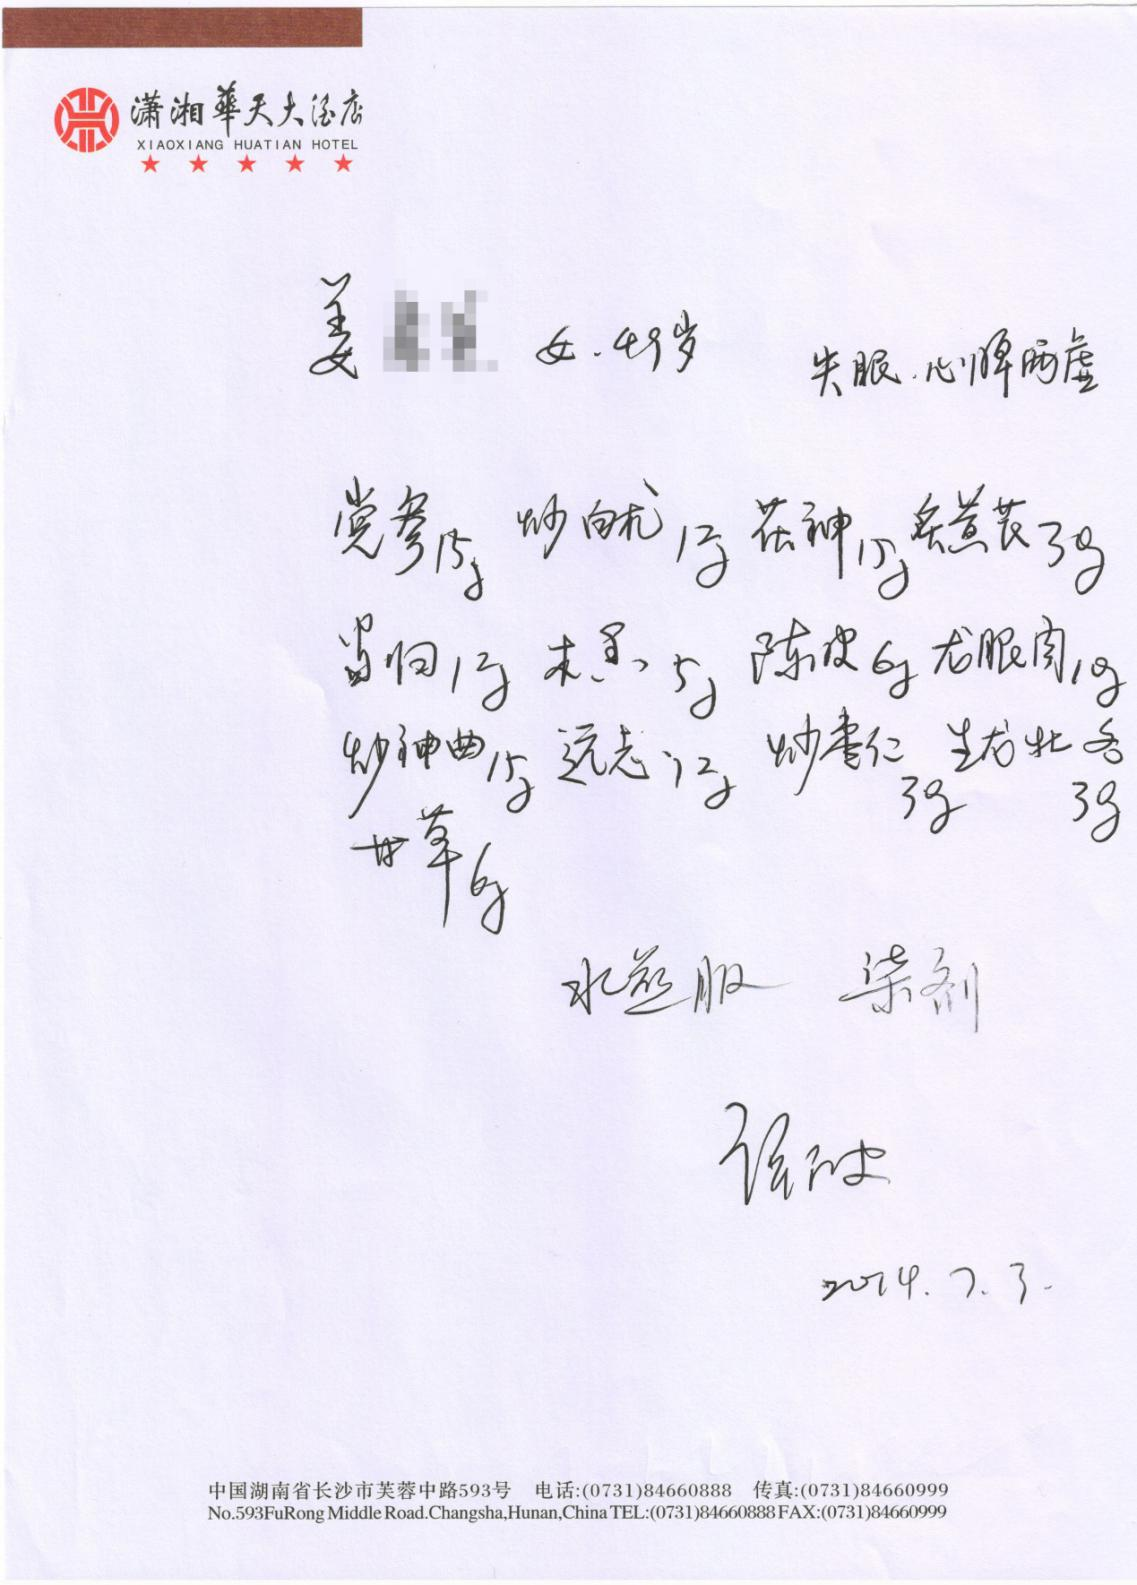 潇湘華天大酒店
XIAOXIANG HUATIAN HOTEL
姜 女.49岁 失眠.心脾两虚
党参15g 炒白术12g 茯神15g 炙黄芪30g
当归12g 木香5g 陈皮6g 龙眼肉10g
炒神曲15g 远志12g 炒枣仁30g 生龙牡各30g
甘草6g
水煎服 柒剂
2014.7.3.
中国湖南省长沙市芙蓉中路593号 电话:(0731)84660888 传真:(0731)84660999
No.593FuRong Middle Road.Changsha,Hunan,China TEL:(0731)84660888 FAX:(0731)84660999